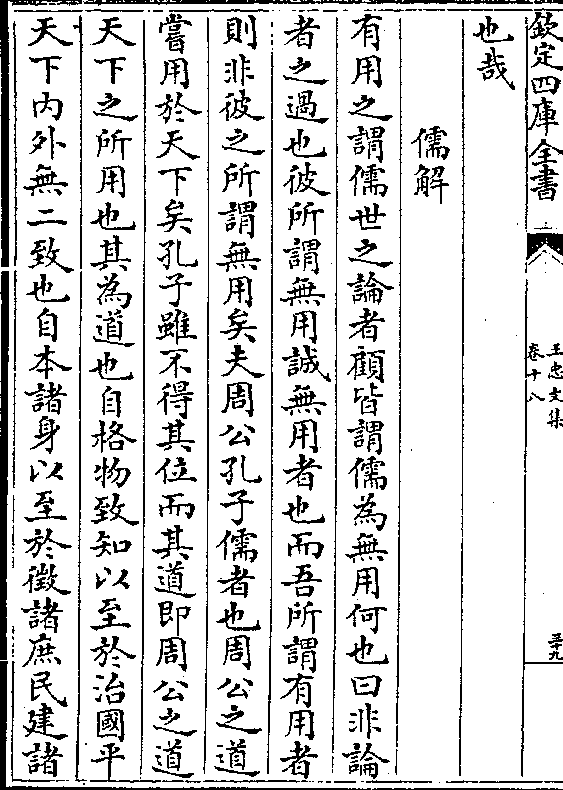 欽定四庫全書
王忠文集
卷十八
三十九
也哉
儒解
有用之謂儒世之論者顧皆謂儒為無用何也曰非論
者之過也彼所謂無用誠無用者也而吾所謂有用者
則非彼之所謂無用矣夫周公孔子儒者也周公之道
嘗用於天下矣孔子雖不得其位而其道即周公之道
天下之所用也其為道也自格物致知以至於治國平
天下內外無二致也自本諸身以至於徵諸庶民建諸